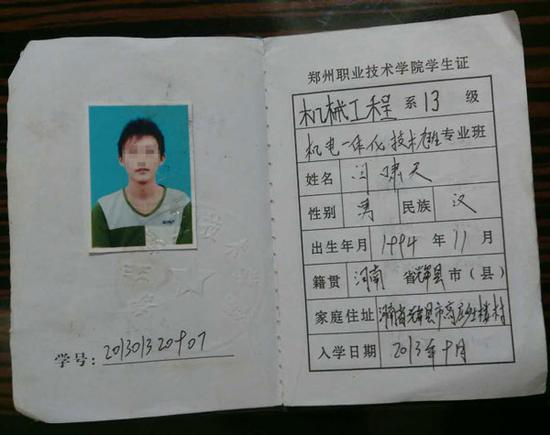 学号: 2013013 20907
郑州职业技术学院学生证
机械工程 系 13 级
机电一体化技术 专业 班
姓名 闫啸天
性别 男 民族 汉
出生年月 1994 年 11 月
籍贯 河南 省 辉县 市(县)
家庭住址 河南省辉县市高庄乡 楼村
入学日期 2013年9月